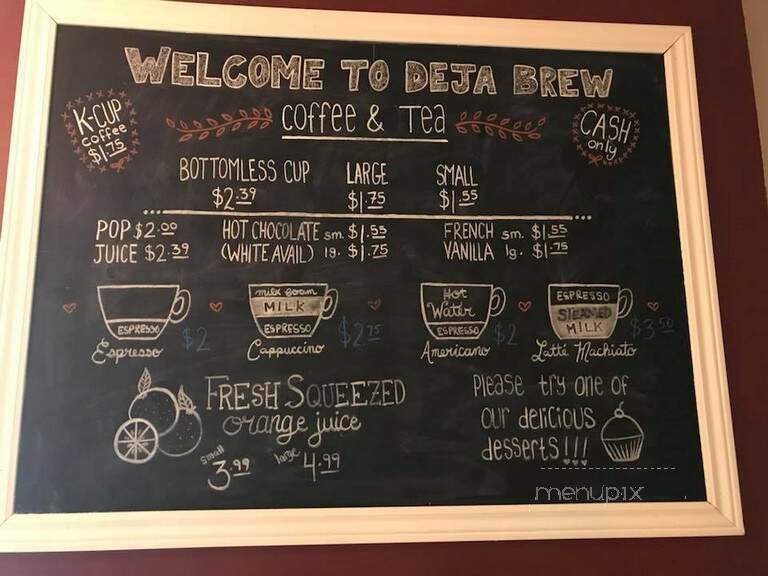 WELCOME TO DEJA BREW
coffee & Tea
K-CUP
coffee
$1.75
CASH
only
BOTTOMLESS CUP LARGE SMALL
$2.39 $1.75 $1.55
POP $2.00 HOT CHOCOLATE sm. $1.55 FRENCH sm. $1.55
JUICE $2.39 (WHITE AVAIL) lg. $1.75 VANILLA lg. $1.75
ESPRESSO
Espresso $2
milk foam
MILK
ESPRESSO
Cappuccino $2.75
Hot
Water
ESPRESSO
Americano $2
ESPRESSO
STEAMED
MILK
Latte Machiato $3.50
FRESH SQUEEZED
orange juice
small 3.99 large 4.99
Please try one of
our delicious
desserts!!!
menupix